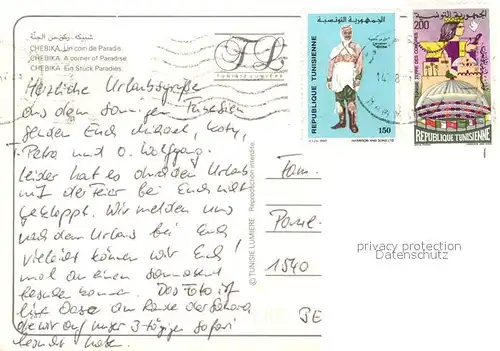 شبيكة - ركن من الجنة
CHEBIKA Un coin de Paradis
CHEBIKA A corner of Paradise
CHEBIKA Ein Stück Paradies
TUNISIE LUMIERE
Herzliche Urlaubsgrüße
aus dem sonnigen Tunesien
senden Euch Michael, Katy,
Petra und O. Wolfgang.
Leider hat es durch den Urlaub
mit der Feier bei Euch nicht
geklappt. Wir melden uns
nach dem Urlaub bei Euch!
vielleicht können wir Euch
mal an einem Sonnabend
besuchen kommen. Das Foto ist
eine Oase am Rande der Sahara
die wir auf unser 3-tägigen Safari
besucht haben.
© TUNISIE LUMIERE Reproduction interdite.
الجمهورية التونسية
REPUBLIQUE TUNISIENNE
150
HARRISON AND SONS LTD
الجمهورية التونسية
200
REPUBLIQUE TUNISIENNE
14 8
Fam.
1540
BE
privacy protection
Datenschutz